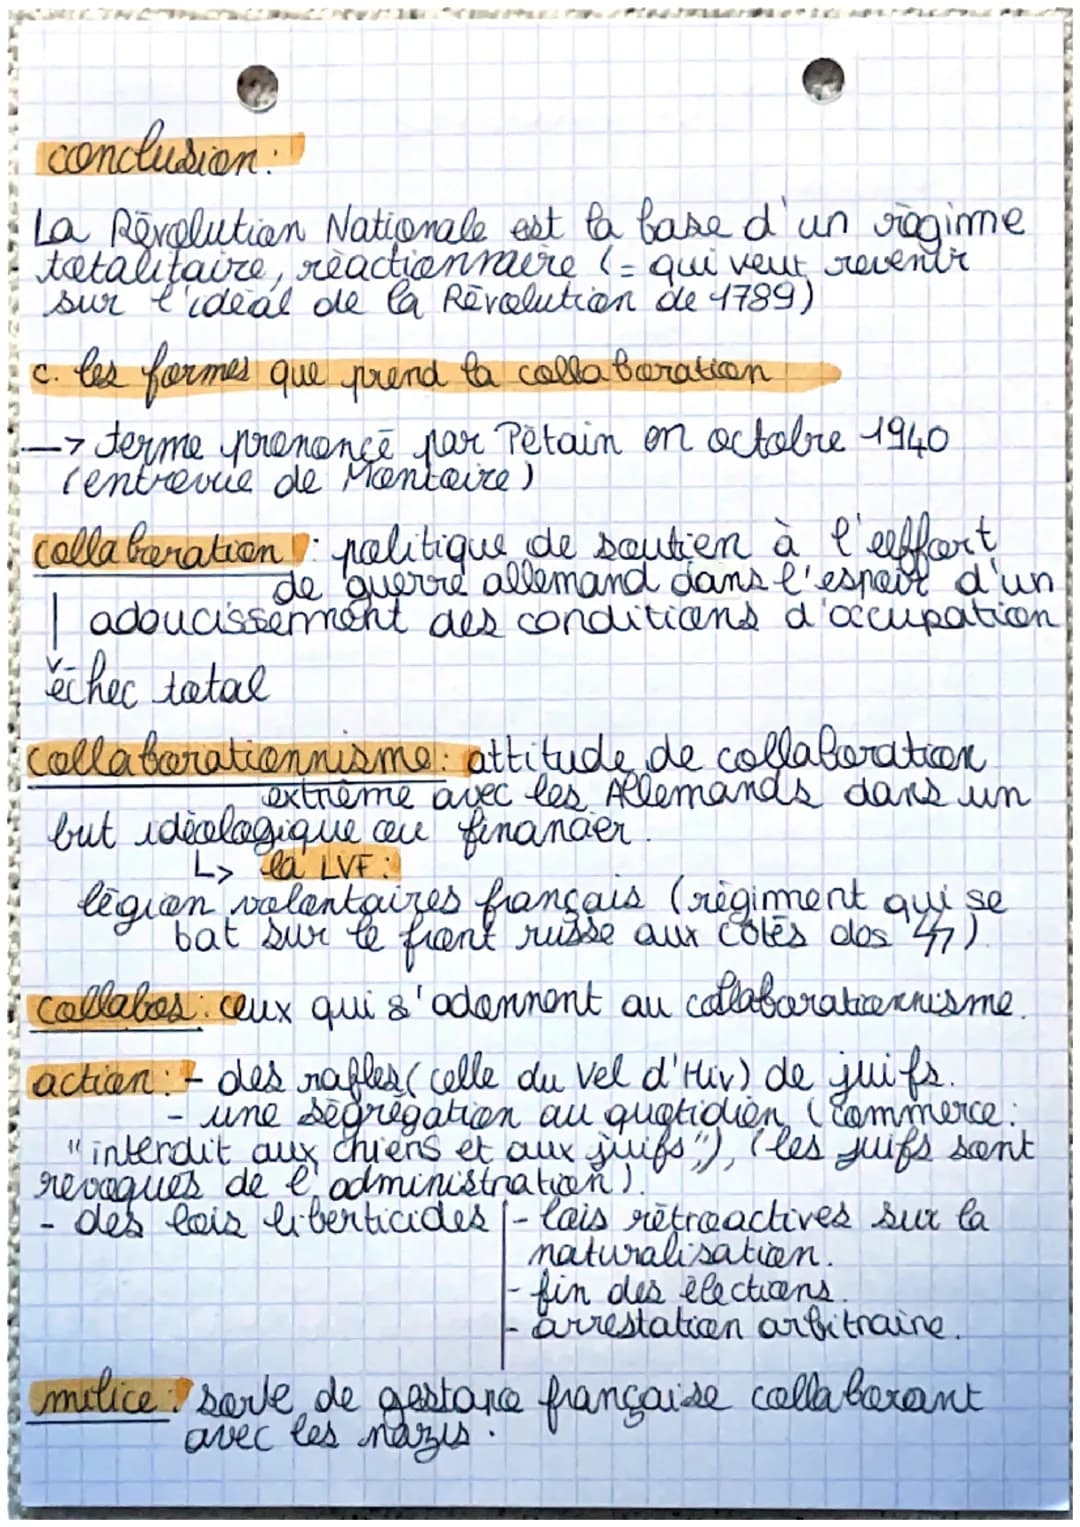 conclusion :
La Révolution Nationale est la base d'un régime
totalitaire, réactionnaire (= qui veut revenir
sur l'idéal de la Révolution de 1789)
c. les formes que prend la collaboration
-> terme prononcé par Pétain en octobre 1940
(entrevue de Montoire)
collaboration : politique de soutien à l'eeffort
de guerre allemand dans l'espoir d'un
adoucissement des conditions d'occupation
échec total
collaborationnisme : attitude de collaboration
extrême avec les Allemands dans un
but idéologique ou financier.
↳ la LVF :
légion volontaires français (régiment qui se
bat sur le front russe aux côtés des ᛋᛋ)
collabos : ceux qui s'adonnent au collaborationnisme.
action : - des rafles (celle du Vel d'Hiv) de juifs.
- une ségrégation au quotidien (commerce :
"interdit aux chiens et aux juifs"), (les juifs sont
révoqués de l'administration).
- des lois liberticides - lois rétroactives sur la
naturalisation.
- fin des élections.
- arrestation arbitraire.
milice : sorte de gestapo française collaborant
avec les nazis.